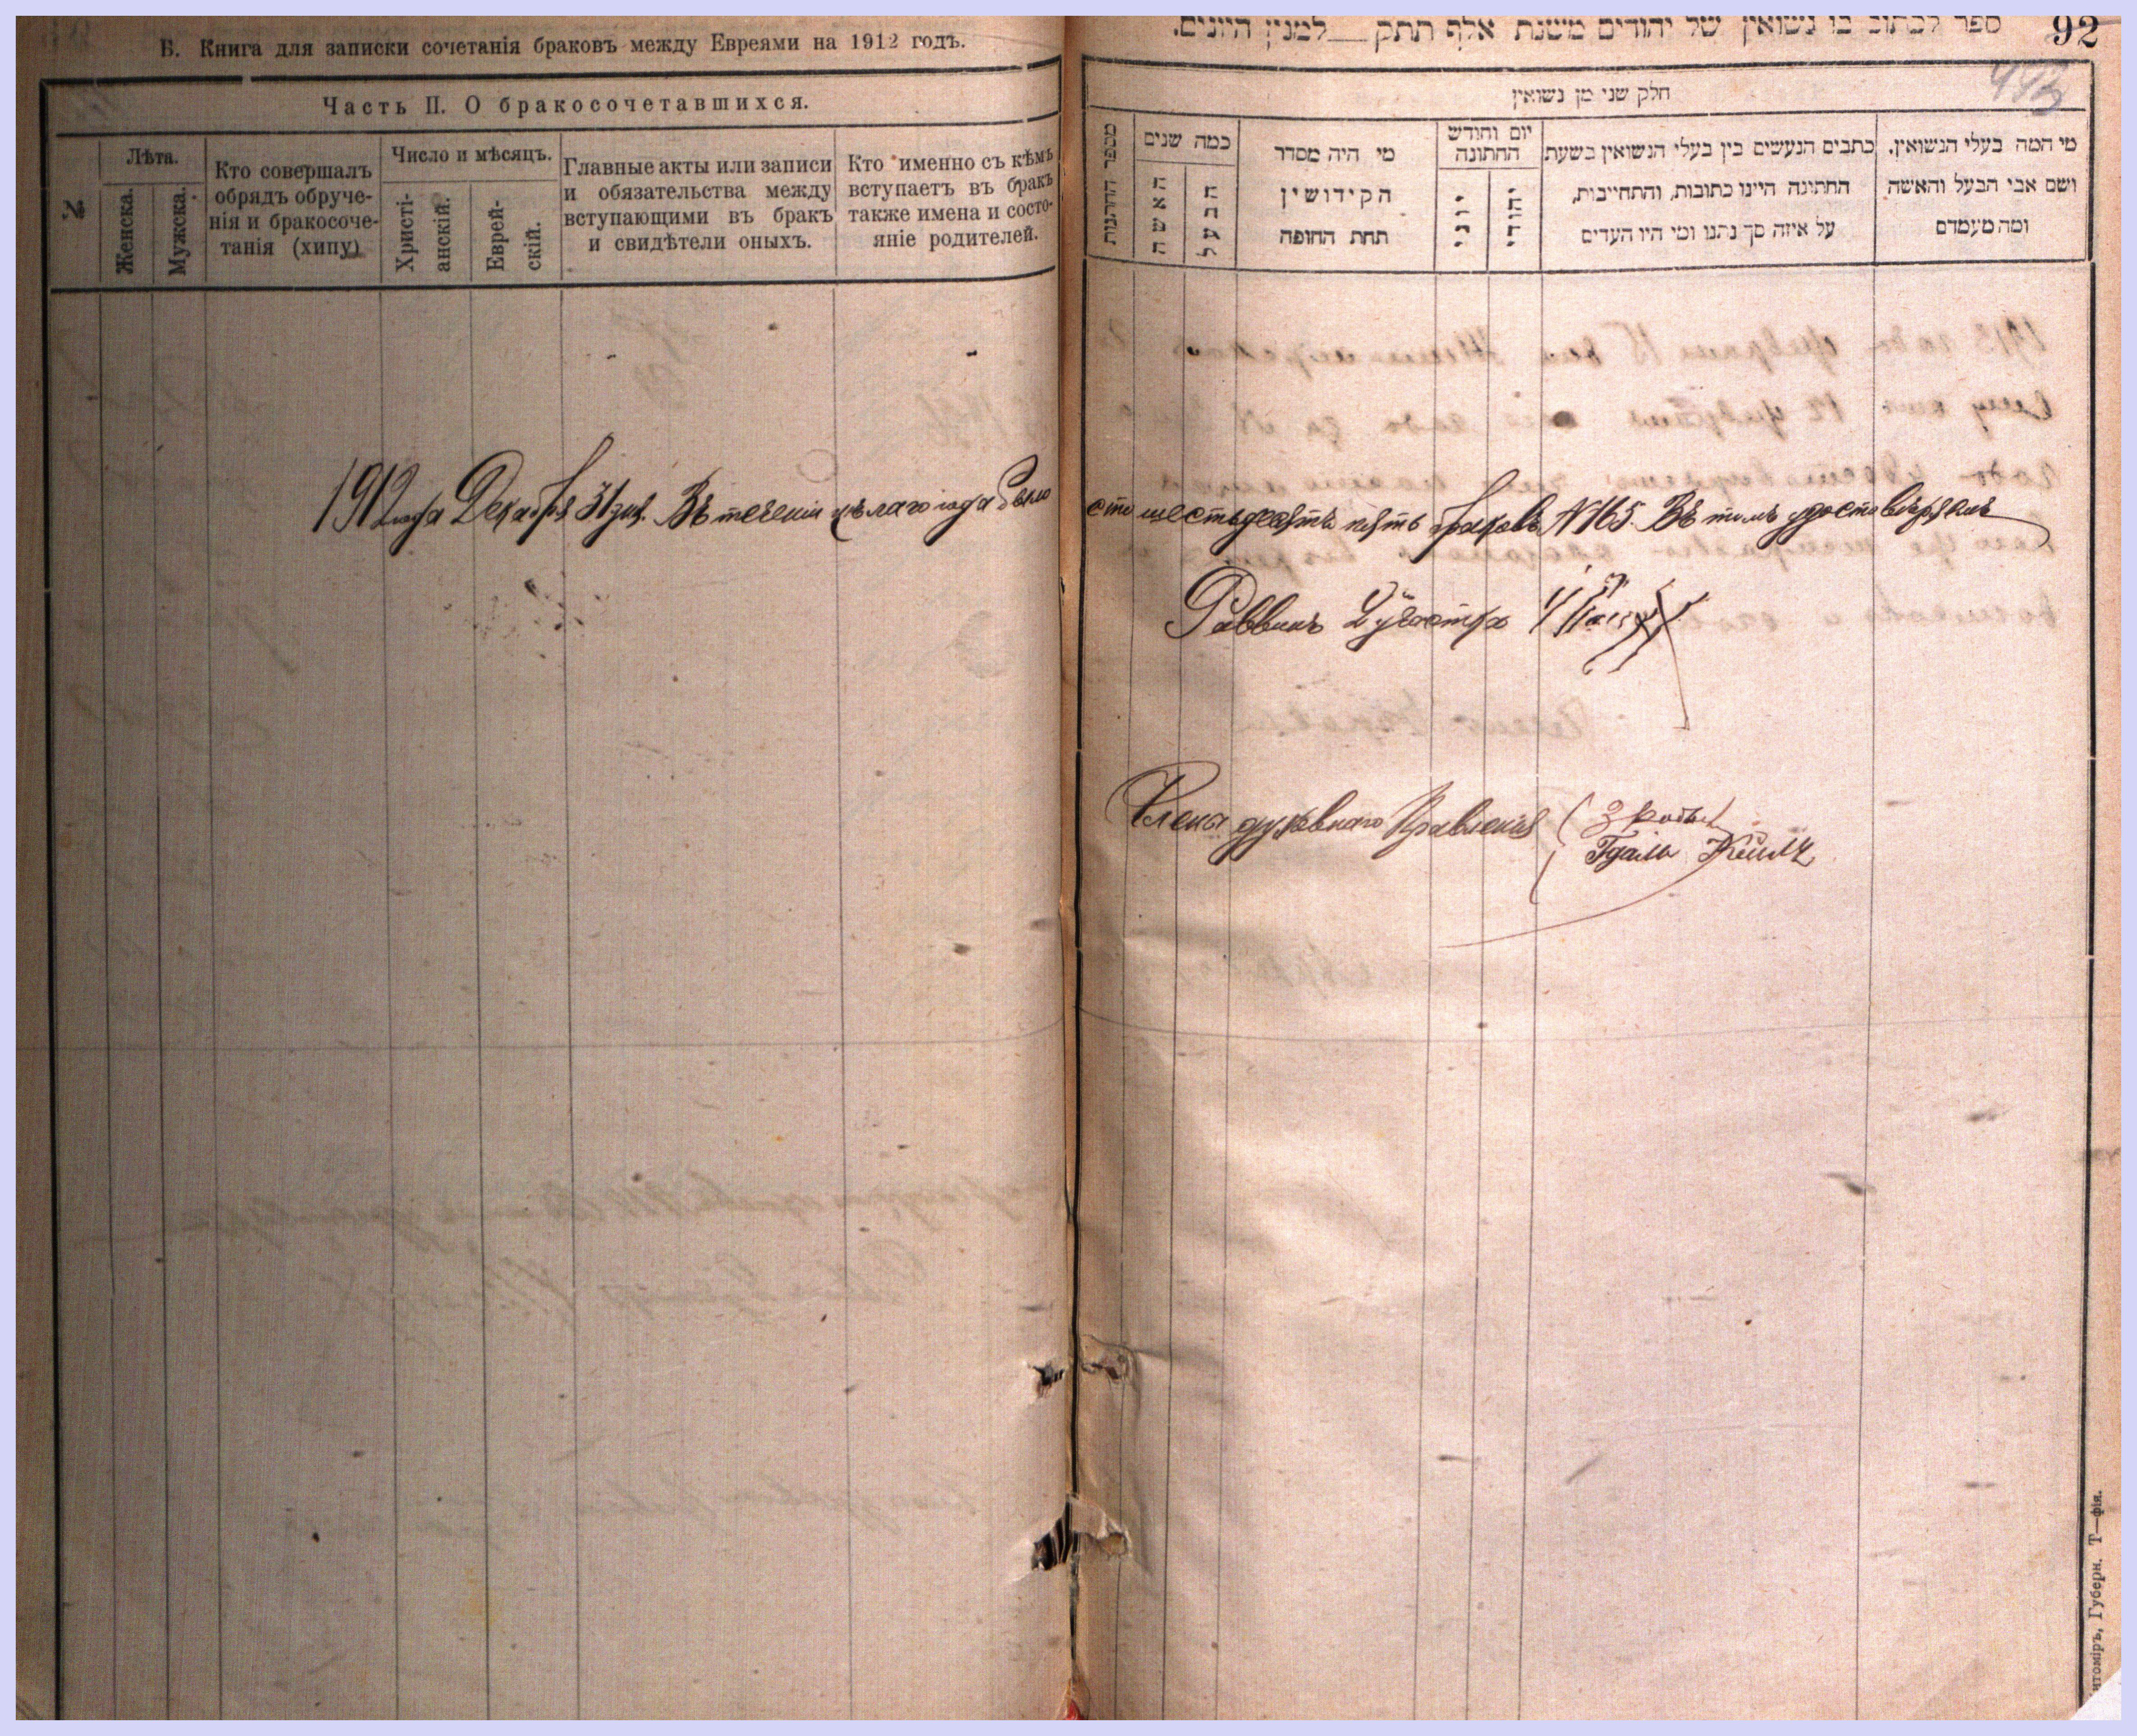 Б. Книга для записки сочетанія браковъ между Евреями на 1912 годъ.
Часть II. О бракосочетавшихся.
№
Лѣта.
Женска.
Мужска.
Кто совершалъ
обрядъ обруче-
нія и бракосоче-
танія (хипу)
Число и мѣсяцъ.
Христі-
анскій.
Еврей-
скій.
Главные акты или записи
и обязательства между
вступающими въ бракъ
и свидѣтели оныхъ.
Кто именно съ кѣмъ
вступаетъ въ бракъ
также имена и состо-
яніе родителей.
ספר לכתוב בו נשואין של יהודים משנת אלף תתק __ למנין היונים.
92
493
חלק שני מן נשואין
מספר החתנות
כמה שנים
האשה
הבעל
מי היה מסדר
הקידושין
תחת החופה
יום וחודש
החתונה
יוני
יהודי
כתבים הנעשים בין בעלי הנשואין בשעת
החתונה היינו כתובות, והתחייבות,
על איזה סך נתנו ומי היו העדים
מי המה בעלי הנשואין,
ושם אבי הבעל והאשה
ומה מעמדם
1912 года Декабря 31 дня. Въ теченіи цѣлаго года было сто шестьдесятъ пять браковъ № 165. Въ томъ удостовѣряемъ
Раввинъ 2 участка
Члены духовнаго Правленія
Гдаль
итоміръ, Губерн. Т—фія.